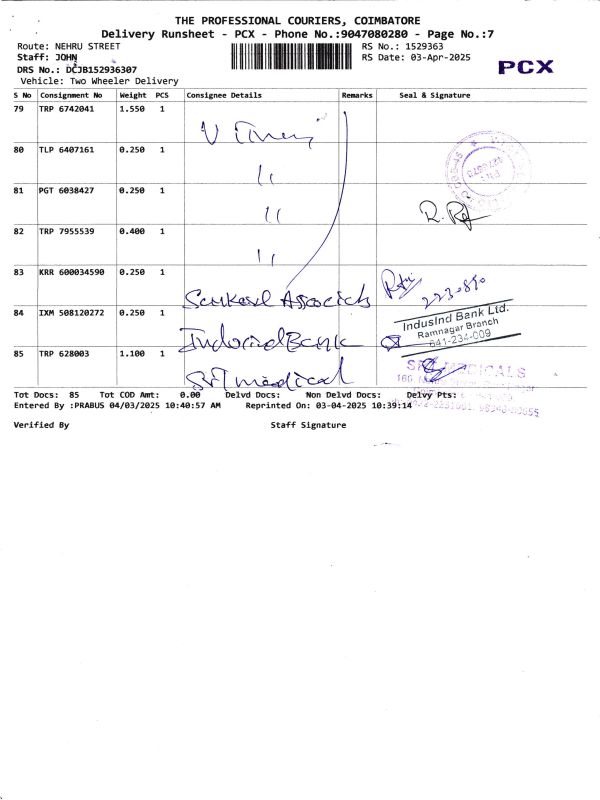 THE PROFESSIONAL COURIERS, COIMBATORE
Delivery Runsheet - PCX - Phone No.:9047080280 - Page No.:7
Route: NEHRU STREET RS No.: 1529363
Staff: JOHN RS Date: 03-Apr-2025
PCX
DRS No.: DCJB152936307
Vehicle: Two Wheeler Delivery
S No Consignment No Weight PCS Consignee Details Remarks Seal & Signature
79 TRP 6742041 1.550 1
80 TLP 6407161 0.250 1 11
81 PGT 6038427 0.250 1 11
R.
82 TRP 7955539 0.400 1 11
83 KRR 600034590 0.250 1 Associats
84 IXM 508120272 0.250 1 Indusind Bank
IndusInd Bank Ltd.
Ramnagar Branch
641-234-009
85 TRP 628003 1.100 1 Sri medical
SRI MEDICALS
Tot Docs: 85 Tot COD Amt: 0.00 Delvd Docs: Non Delvd Docs: Delvy Pts:
Entered By :PRABUS 04/03/2025 10:40:57 AM Reprinted On: 03-04-2025 10:39:14
Verified By Staff Signature